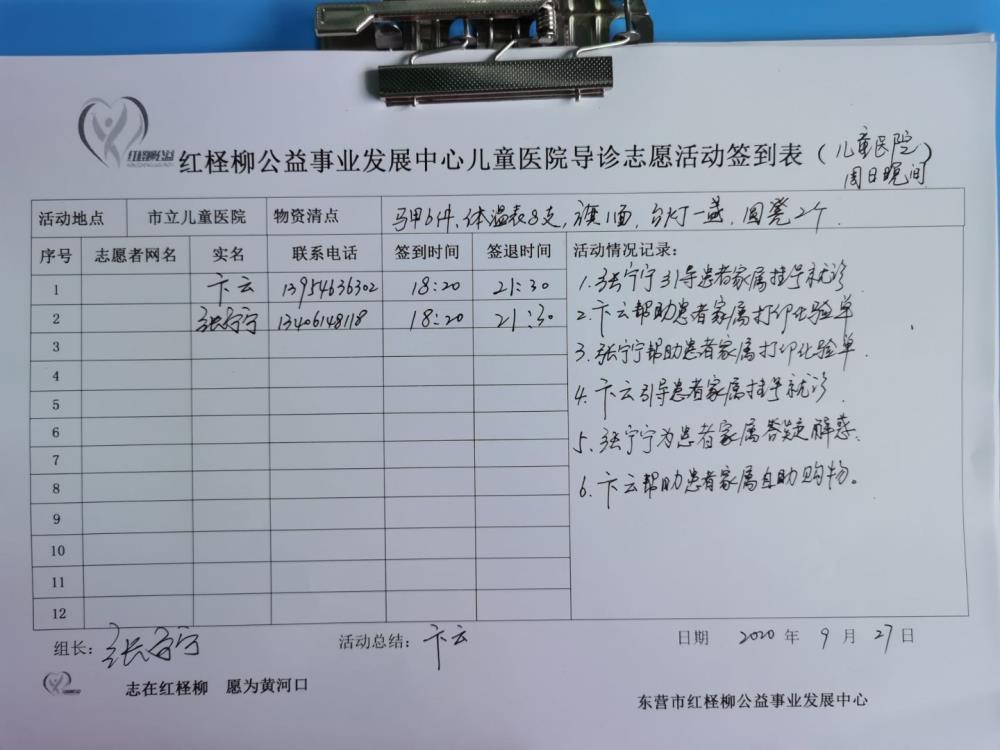 红柽柳公益
红柽柳公益事业发展中心儿童医院导诊志愿活动签到表（儿童医院 周日晚间）
活动地点 市立儿童医院 物资清点 马甲6件、体温表8支，旗1面，台灯一盏，圆凳2个.
序号 志愿者网名 实名 联系电话 签到时间 签退时间 活动情况记录：
1 卞云 13954636302 18:20 21:30 1.张宁宁引导患者家属挂号就诊
2 张宁宁 13406148118 18:20 21:30 2.卞云帮助患者家属打印化验单
3 3.张宁宁帮助患者家属打印化验单.
4 4.卞云引导患者家属挂号就诊.
5 5、张宁宁为患者家属答疑解惑.
6 6.卞云帮助患者家属自助购物。
7
8
9
10
11
12
组长：张宁宁 活动总结：卞云 日期 2020 年 9 月 27 日
志在红柽柳 愿为黄河口
东营市红柽柳公益事业发展中心